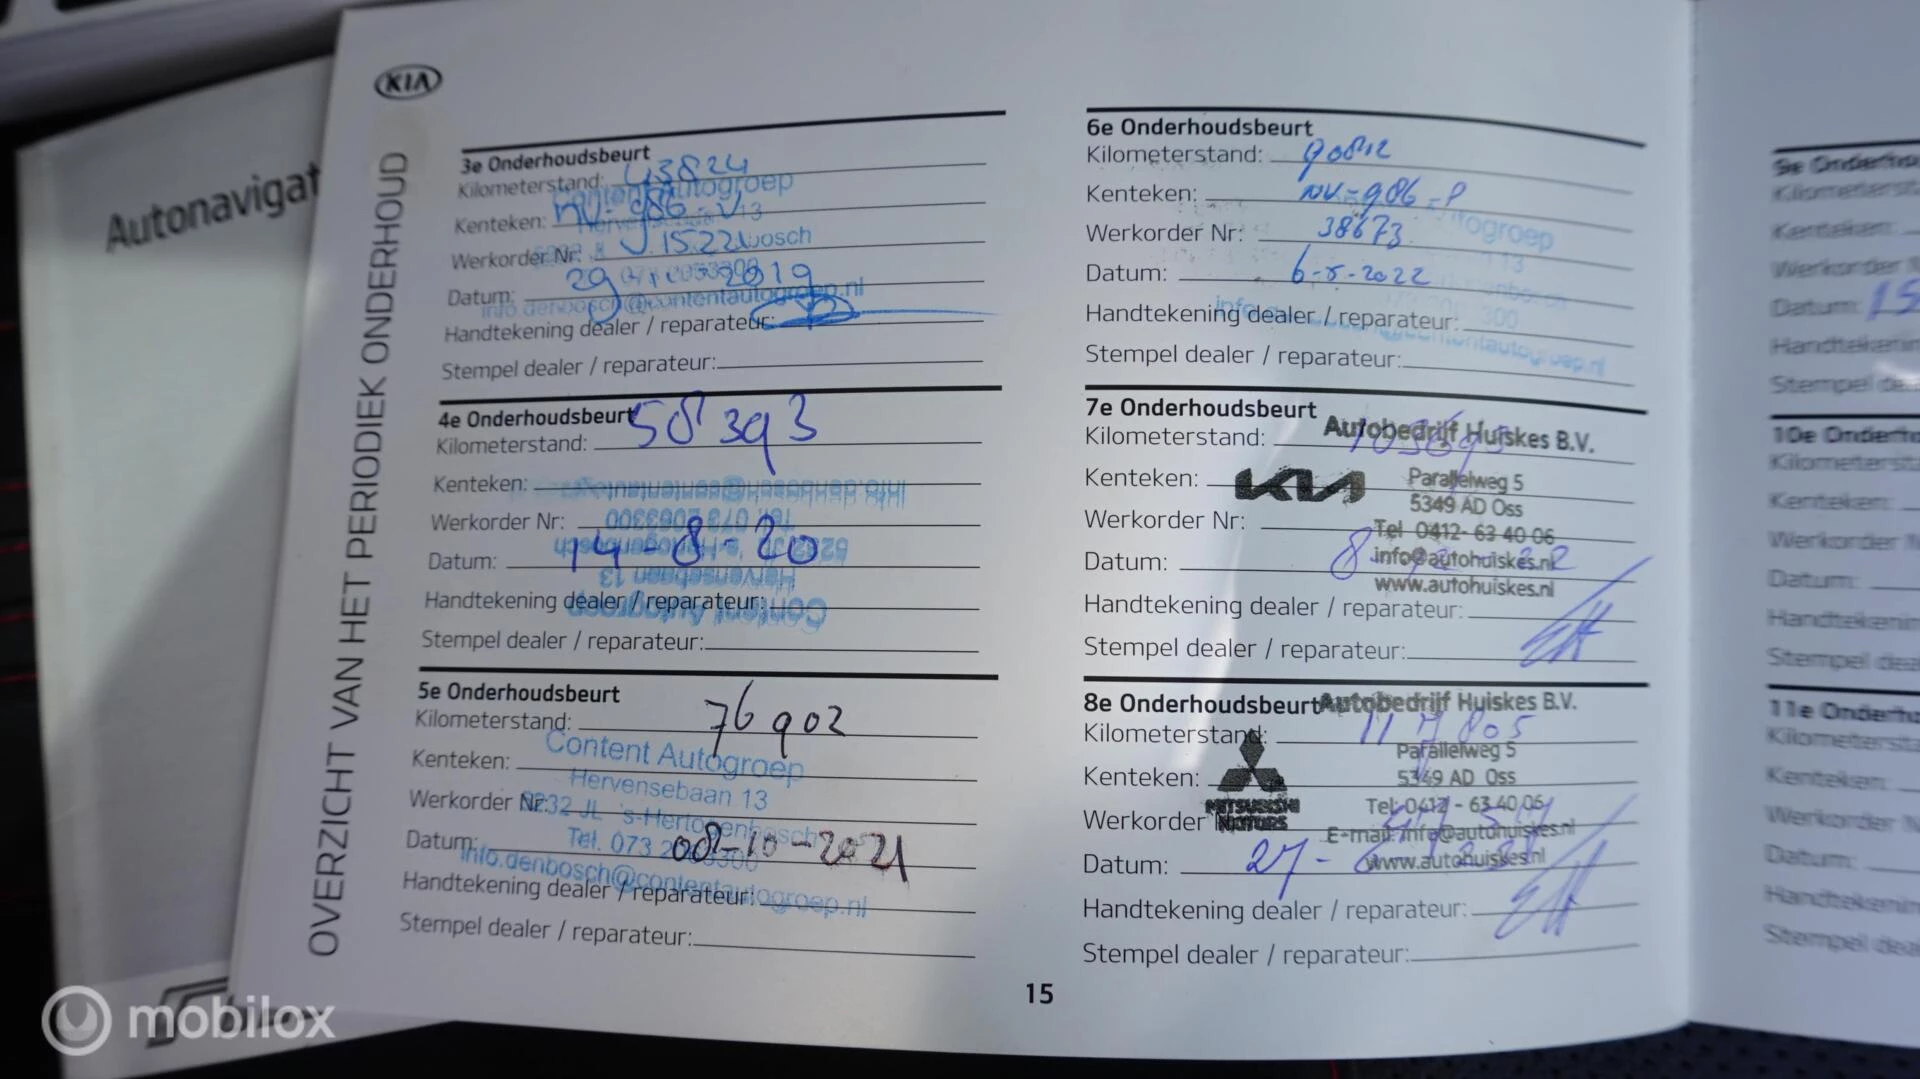 Autonavigat
KIA
OVERZICHT VAN HET PERIODIEK ONDERHOUD
3e Onderhoudsbeurt
Kilometerstand: 43824
Kenteken: NV-986-V
Werkorder Nr: 1522
Datum: 29 2019
Handtekening dealer / reparateur:
Stempel dealer / reparateur:
Content Autogroep
info.denbosch@contentautogroep.nl
4e Onderhoudsbeurt
Kilometerstand: 58393
Kenteken:
Werkorder Nr:
Datum: 14-8-20
Handtekening dealer / reparateur:
Stempel dealer / reparateur:
info.denbosch@contentautogroep.nl
Tel. 073 2063300
5232 JL 's-Hertogenbosch
Hervensebaan 13
Content Autogroep
5e Onderhoudsbeurt
Kilometerstand: 76902
Kenteken:
Werkorder Nr:
Datum: 08-10-2021
Handtekening dealer / reparateur:
Stempel dealer / reparateur:
Content Autogroep
Hervensebaan 13
5232 JL 's-Hertogenbosch
Tel. 073 2063300
info.denbosch@contentautogroep.nl
6e Onderhoudsbeurt
Kilometerstand: 90812
Kenteken: NV-986-P
Werkorder Nr: 38673
Datum: 6-5-2022
Handtekening dealer / reparateur:
Stempel dealer / reparateur:
7e Onderhoudsbeurt
Kilometerstand:
Kenteken:
Werkorder Nr:
Datum: 8
Handtekening dealer / reparateur:
Stempel dealer / reparateur:
Autobedrijf Huiskes B.V.
KIA
Parallelweg 5
5349 AD Oss
Tel 0412- 63 40 06
info@autohuiskes.nl
www.autohuiskes.nl
8e Onderhoudsbeurt
Kilometerstand: 117805
Kenteken:
Werkorder Nr:
Datum: 27-
Handtekening dealer / reparateur:
Stempel dealer / reparateur:
Autobedrijf Huiskes B.V.
MITSUBISHI
MOTORS
Parallelweg 5
5349 AD Oss
Tel: 0412 - 63 40 06
E-mail: info@autohuiskes.nl
www.autohuiskes.nl
15
9e Onderho
Kilometerst
Kenteken:
Werkorder N
Datum: 15
Handtekenin
Stempel dea
10e Onderho
Kilometersta
Kenteken:
Werkorder N
Datum:
Handtekenin
Stempel deal
11e Onderho
Kilometersta
Kenteken:
Werkorder N
Datum:
Handtekenin
Stempel deal
mobilox